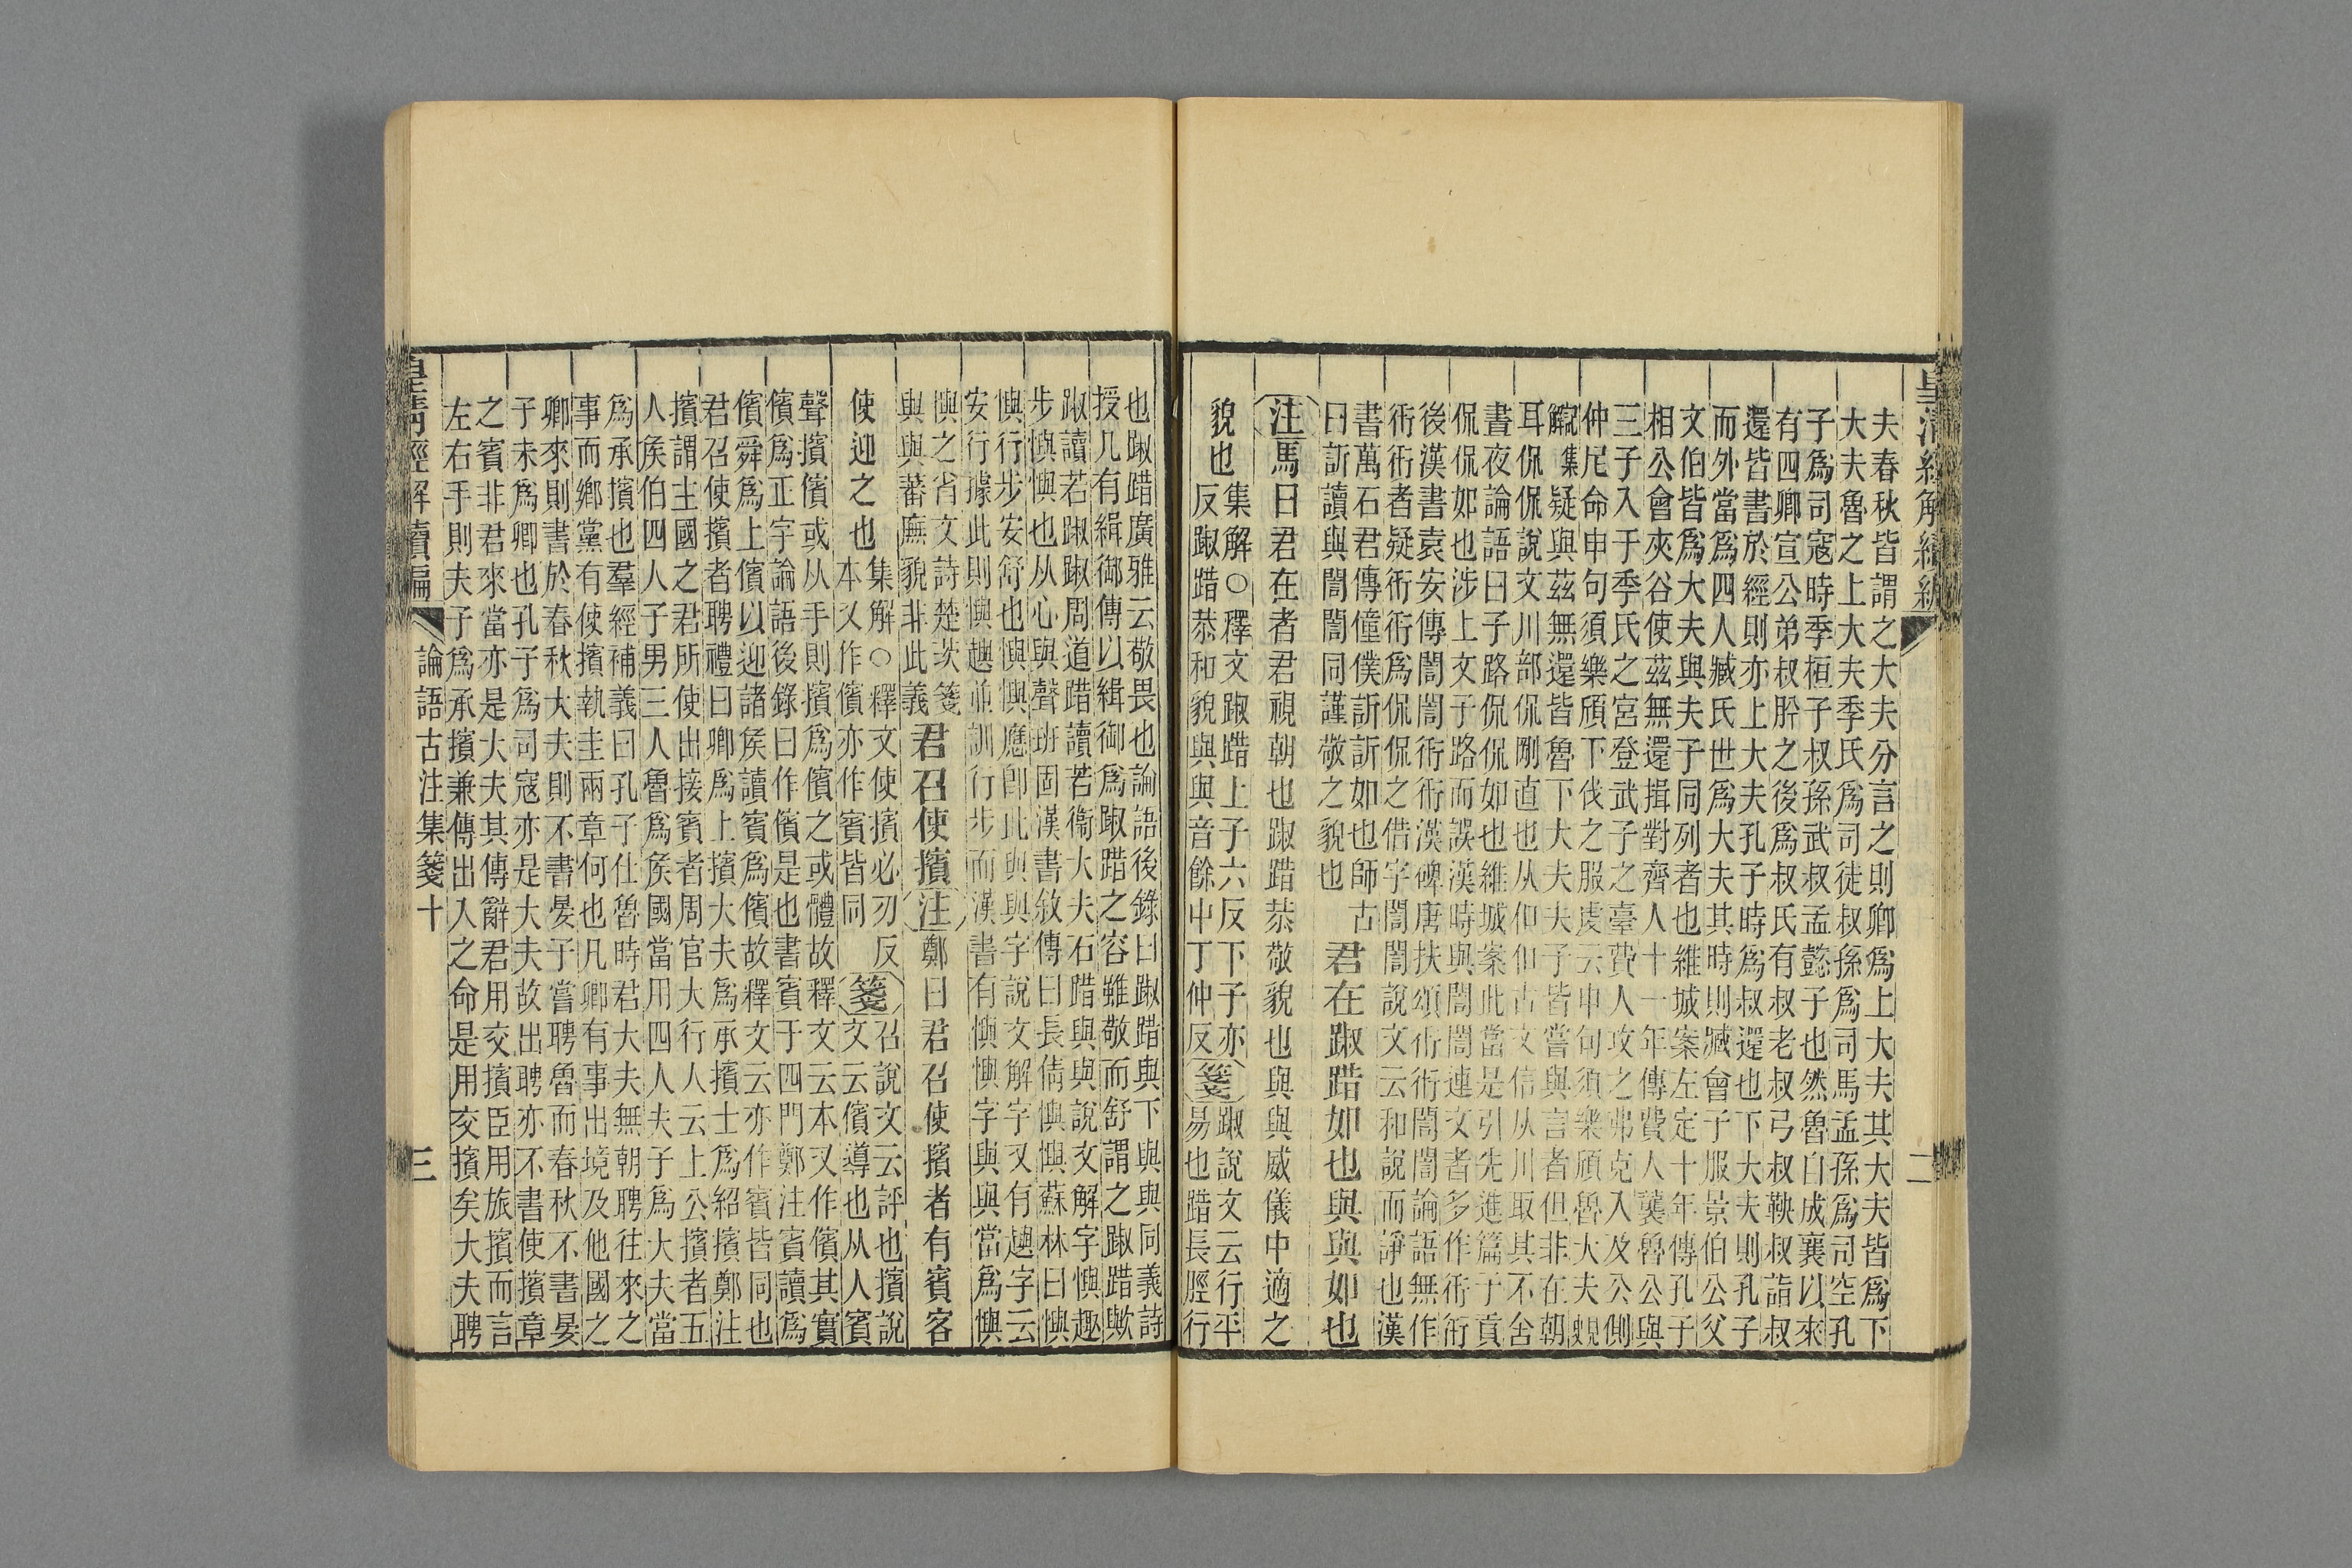 皇清經解續編
二
夫春秋皆謂之大夫分言之則卿爲上大夫其大夫皆爲下
大夫魯之上大夫季氏爲司徒叔孫爲司馬孟孫爲司空孔
子爲司寇時季桓子叔孫武叔孟懿子也然魯自成襄以來
有四卿宣公弟叔肸之後爲叔氏有叔老叔弓叔鞅叔詣叔
還皆書於經則亦上大夫孔子時爲叔還也下大夫則孔子
而外當爲四人臧氏世爲大夫其時則臧會子服景伯公父
文伯皆爲大夫與夫子同列者也維城案左定十年傳孔子
相公會夾谷使茲無還揖對齊人十一年傳費人襲魯公與
三子入于季氏之宮登武子之臺費人攻之弗克入及公側
仲尼命申句須樂頎下伐之服虔云申句須樂頎魯大夫
集疑與茲無還皆魯下大夫夫子皆嘗與言者但非在朝
耳侃侃說文川部侃剛直也从仰仰古文信从川取其不舍
晝夜論語曰子路侃侃如也維城案此當是引先進篇子貢
侃侃如也涉上文子路而誤漢時與誾誾連文者多作衎衎
後漢書袁安傳誾誾衎衎漢碑唐扶頌衎衎誾誾論語無作
衎衎者疑衎衎爲侃侃之借字誾誾說文云和說而諍也漢
書萬石君傳僮僕訢訢如也師古
曰訢讀與誾誾同謹敬之貌也
君在踧踖如也與與如也
注馬曰君在者君視朝也踧踖恭敬貌也與與威儀中適之
貌也
集解○釋文踧踖上子六反下子亦
反踧踖恭和貌與與音餘中丁仲反
箋
踧說文云行平
易也踖長脛行
也踧踖廣雅云敬畏也論語後錄曰踧踖與下與與同義詩
授几有緝御傳以緝御爲踧踖之容雖敬而舒謂之踧踖歟
踧讀若踧踧周道踖讀若衞大夫石踖與與說文解字懙趣
步懙懙也从心與聲班固漢書敘傳曰長倩懙懙蘇林曰懙
懙行步安舒也懙懙應卽此與與字說文解字又有趣字云
安行據此則懙趣並訓行步而漢書有懙懙字與與當爲懙
懙之省文詩楚茨箋
與與蕃廡貌非此義
君召使擯
注鄭曰君召使擯者有賓客
使迎之也
集解○釋文使擯必刃反
本又作儐亦作賓皆同
箋
召說文云評也擯說
文云儐導也从人賓
聲擯儐或从手則擯爲儐之或體故釋文云本又作儐其實
儐爲正字論語後錄曰作儐是也書賓于四門鄭注賓讀爲
儐舜爲上儐以迎諸侯讀賓爲儐故釋文云亦作賓皆同也
君召使擯者聘禮曰卿爲上擯大夫爲承擯士爲紹擯鄭注
擯謂主國之君所使出接賓者周官大行人云上公擯者五
人侯伯四人子男三人魯爲侯國當用四人夫子爲大夫當
爲承擯也羣經補義曰孔子仕魯時君大夫無朝聘往來之
事而鄉黨有使擯執圭兩章何也凡卿有事出境及他國之
卿來則書於春秋大夫則不書晏子嘗聘魯而春秋不書晏
子未爲卿也孔子爲司寇亦是大夫故出聘亦不書使擯章
之賓非君來當亦是大夫其傳辭君用交擯臣用旅擯而言
左右手則夫子爲承擯兼傳出入之命是用交擯矣大夫聘
皇清經解續編
論語古注集箋十
三